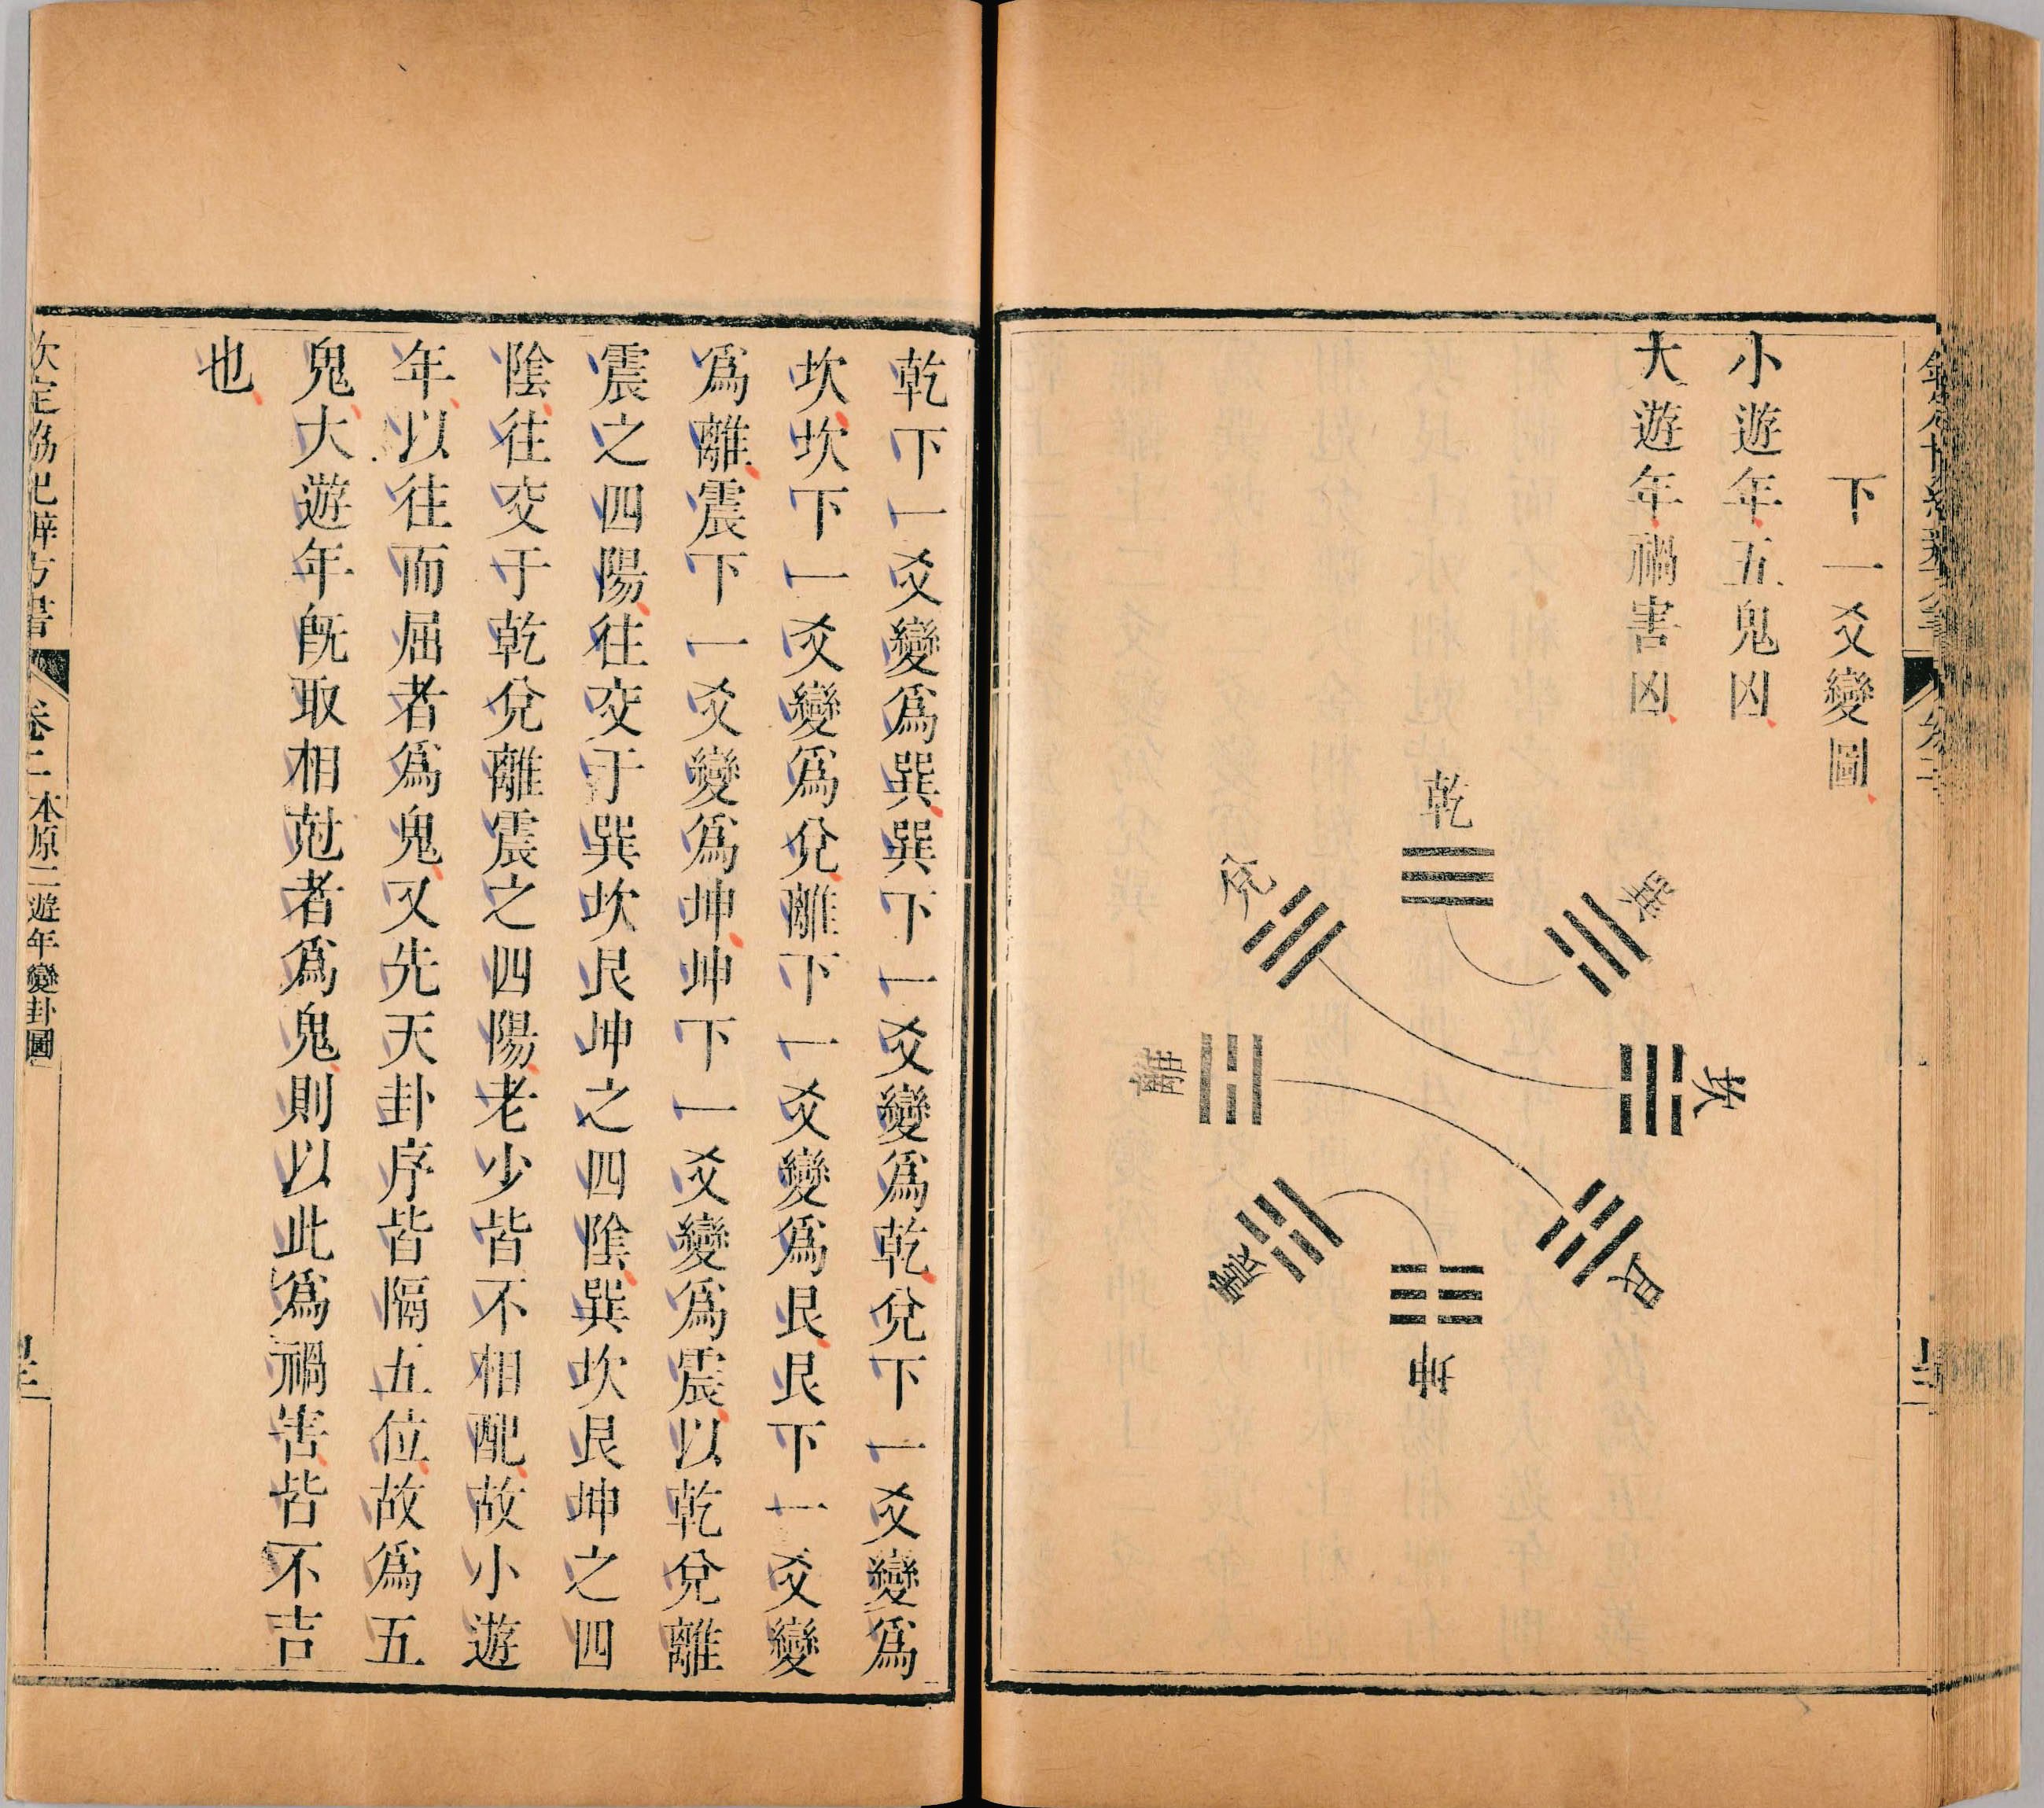 下一爻變圖
小遊年五鬼凶
大遊年禍害凶
乾
兌
巽
離
坎
震
艮
坤
乾下一爻變爲巽巽下一爻變爲乾兌下一爻變爲
坎坎下一爻變爲兌離下一爻變爲艮艮下一爻變
爲離震下一爻變爲坤坤下一爻變爲震以乾兌離
震之四陽往交于巽坎艮坤之四陰巽坎艮坤之四
陰往交于乾兌離震之四陽老少皆不相配故小遊
年以往而屈者爲鬼又先天卦序皆隔五位故爲五
鬼大遊年旣取相尅者爲鬼則以此爲禍害皆不吉
也
欽定協紀辨方書 卷二 本原二遊年變卦圖